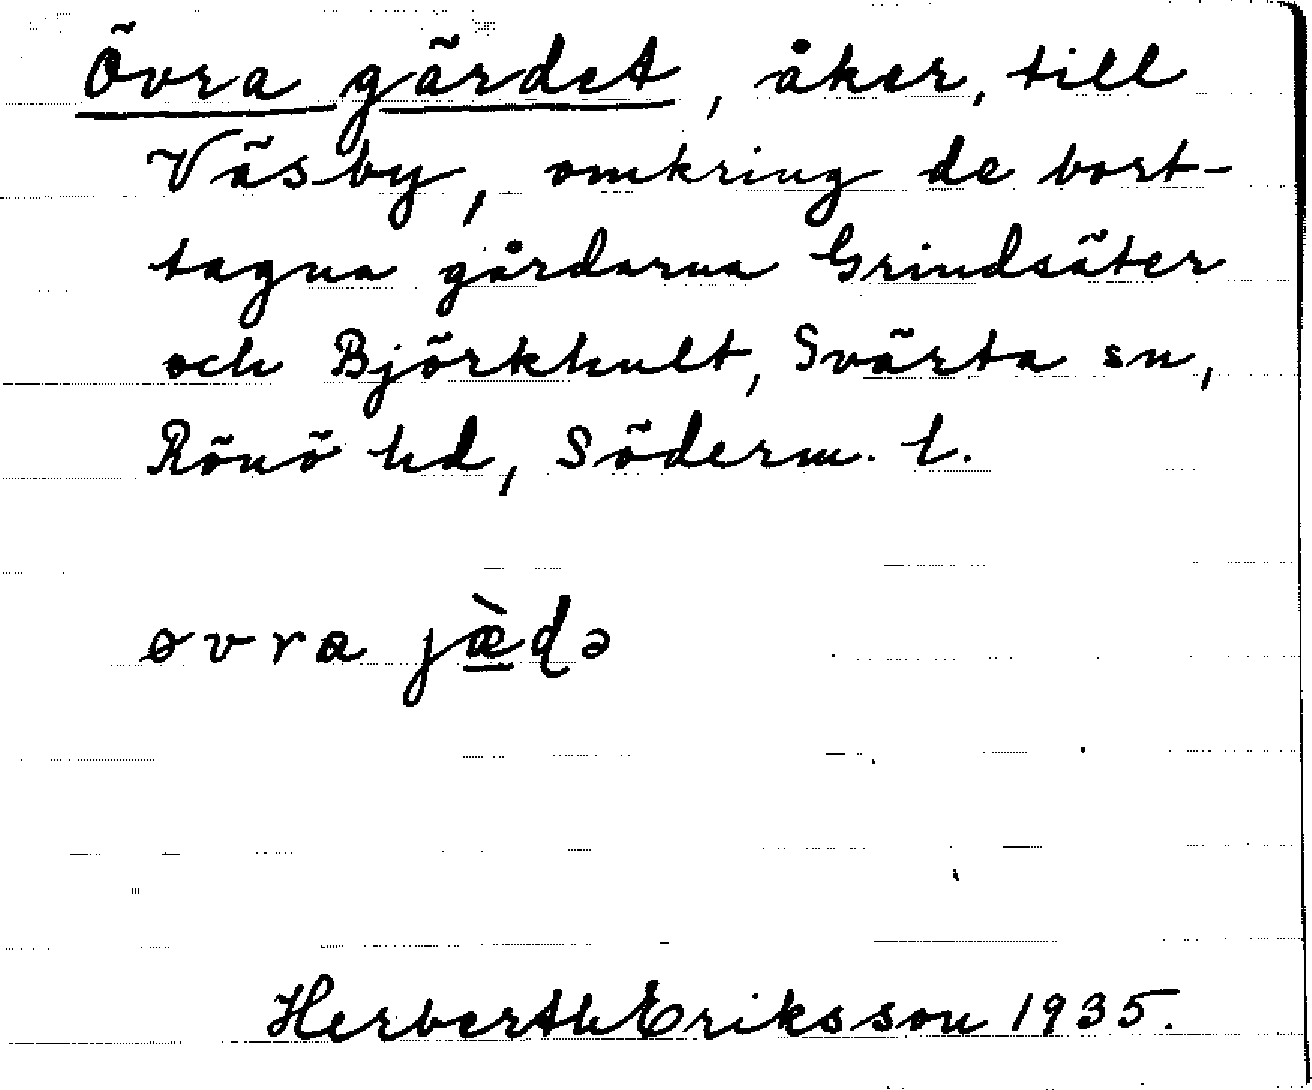 Övra gärdet, åker, till
Väsby, omkring de bort-
tagna gårdarna Grindsäter
och Björkhult, Svärta sn,
Rönö hd, Söderm. l.
øvra jæ̱̀ɖə
Herberth Eriksson 1935.